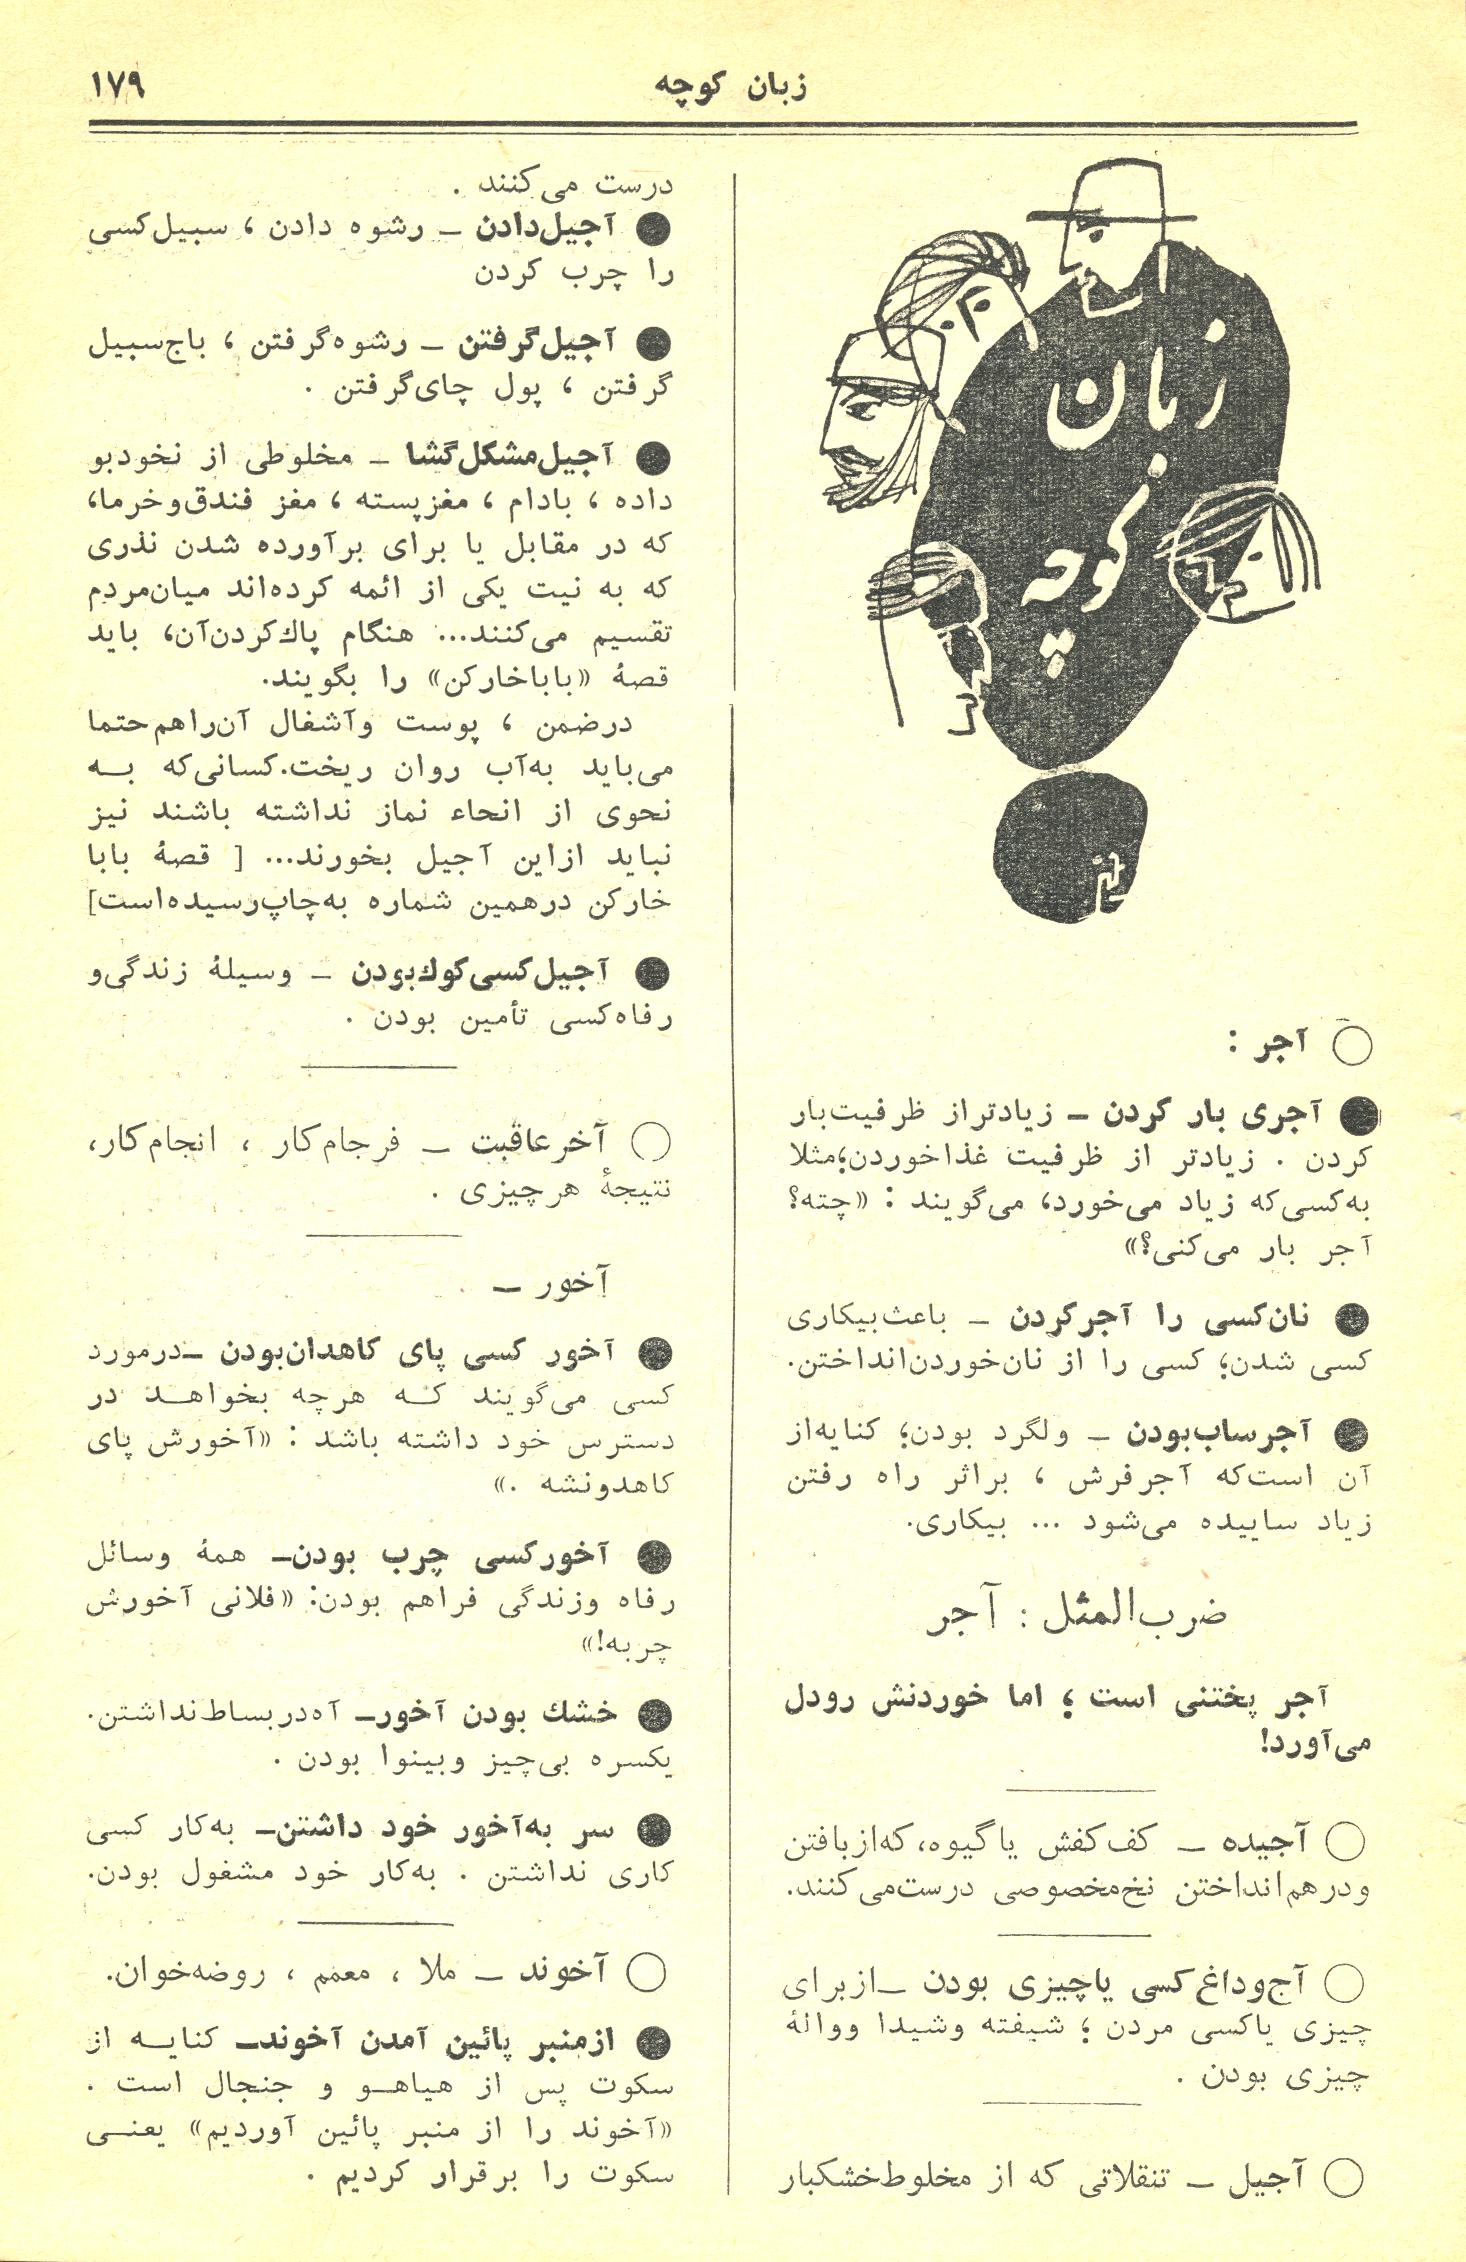 زبان کوچه
۱۷۹
زبان
کوچه
آجر :
آجری بار کردن – زیادتر از ظرفیت بار
کردن . زیادتر از ظرفیت غذا خوردن؛ مثلا
به کسی که زیاد می‌خورد، می‌گویند : «چته؟
آجر بار می‌کنی؟»
نان کسی را آجر کردن – باعث بیکاری
کسی شدن؛ کسی را از نان خوردن انداختن.
آجر ساب بودن – ولگرد بودن؛ کنایه از
آن است که آجر فرش ، بر اثر راه رفتن
زیاد ساییده می‌شود ... بیکاری.
ضرب المثل : آجر
آجر پختنی است ؛ اما خوردنش رودل
می‌آورد!
آجیده – کف کفش یا گیوه، که از بافتن
و درهم انداختن نخ مخصوصی درست می‌کنند.
آج و داغ کسی یا چیزی بودن – از برای
چیزی یا کسی مردن ؛ شیفته و شیدا و والهٔ
چیزی بودن .
آجیل – تنقلاتی که از مخلوط خشکبار
درست می‌کنند .
آجیل دادن – رشوه دادن ، سبیل کسی
را چرب کردن
آجیل گرفتن – رشوه گرفتن ، باج سبیل
گرفتن ، پول چای گرفتن .
آجیل مشکل گشا – مخلوطی از نخود بو
داده ، بادام ، مغز پسته ، مغز فندق و خرما،
که در مقابل یا برای برآورده شدن نذری
که به نیت یکی از ائمه کرده‌اند میان مردم
تقسیم می‌کنند... هنگام پاك کردن آن، باید
قصهٔ «بابا خارکن» را بگویند.
درضمن ، پوست و آشغال آن را هم حتما
می‌باید به آب روان ریخت. کسانی که به
نحوی از انحاء نماز نداشته باشند نیز
نباید از این آجیل بخورند... [ قصهٔ بابا
خارکن درهمین شماره به چاپ رسیده است]
آجیل کسی کوك بودن – وسیلهٔ زندگی و
رفاه کسی تأمین بودن .
آخر عاقبت – فرجام کار ، انجام کار،
نتیجهٔ هر چیزی .
آخور –
آخور کسی پای کاهدان بودن – درمورد
کسی می‌گویند که هرچه بخواهد در
دسترس خود داشته باشد : «آخورش پای
کاهدونشه .»
آخور کسی چرب بودن – همهٔ وسائل
رفاه و زندگی فراهم بودن: «فلانی آخورش
چربه!»
خشك بودن آخور – آه در بساط نداشتن.
یکسره بی‌چیز و بینوا بودن .
سر به آخور خود داشتن – به کار کسی
کاری نداشتن . به کار خود مشغول بودن.
آخوند – ملا ، معمم ، روضه خوان.
از منبر پائین آمدن آخوند – کنایه از
سکوت پس از هیاهو و جنجال است .
«آخوند را از منبر پائین آوردیم» یعنی
سکوت را برقرار کردیم .